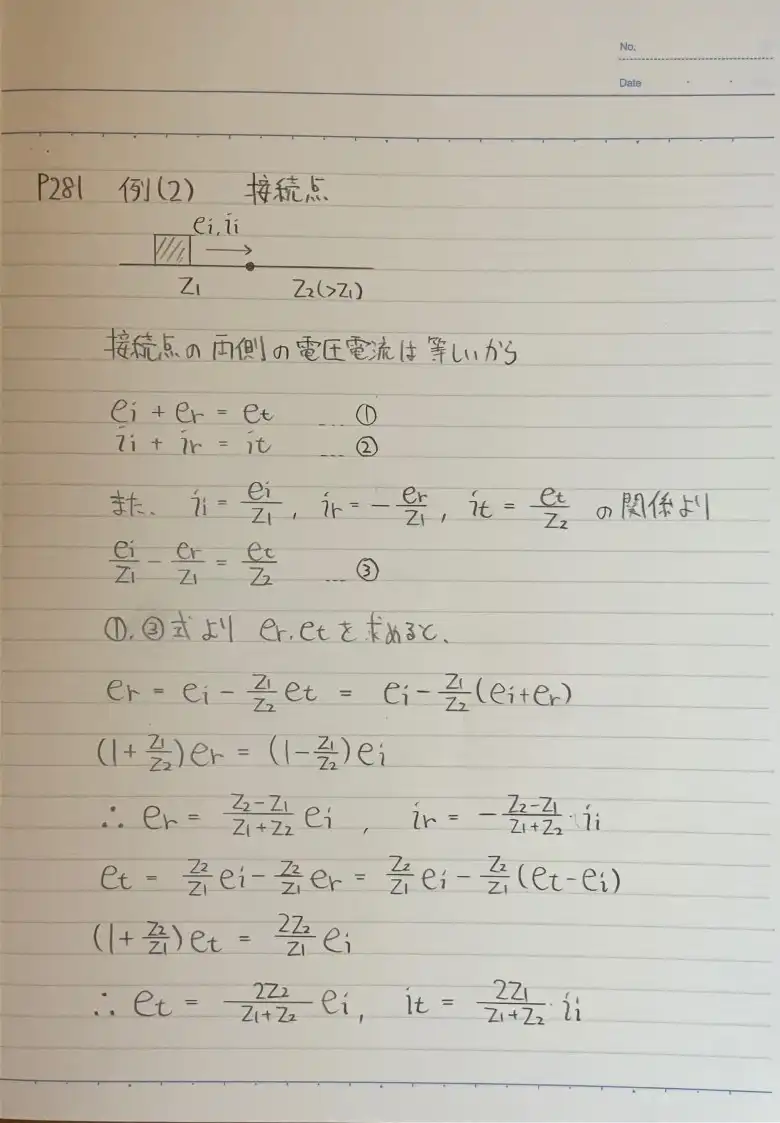 No.
Date
P281 例(2) 接続点
ei, ii
Z1 Z2(>Z1)
接続点の両側の電圧電流は等しいから
ei + er = et … ①
ii + ir = it … ②
また、 ii = ei/Z1, ir = -er/Z1, it = et/Z2 の関係より
ei/Z1 - er/Z1 = et/Z2 … ③
①,③式より er, et を求めると、
er = ei - Z1/Z2 et = ei - Z1/Z2 (ei+er)
(1+Z1/Z2)er = (1-Z1/Z2)ei
∴ er = (Z2-Z1)/(Z1+Z2) ei , ir = -(Z2-Z1)/(Z1+Z2)・ii
et = Z2/Z1 ei - Z2/Z1 er = Z2/Z1 ei - Z2/Z1 (et-ei)
(1+Z2/Z1)et = 2Z2/Z1 ei
∴ et = 2Z2/(Z1+Z2) ei, it = 2Z1/(Z1+Z2)・ii